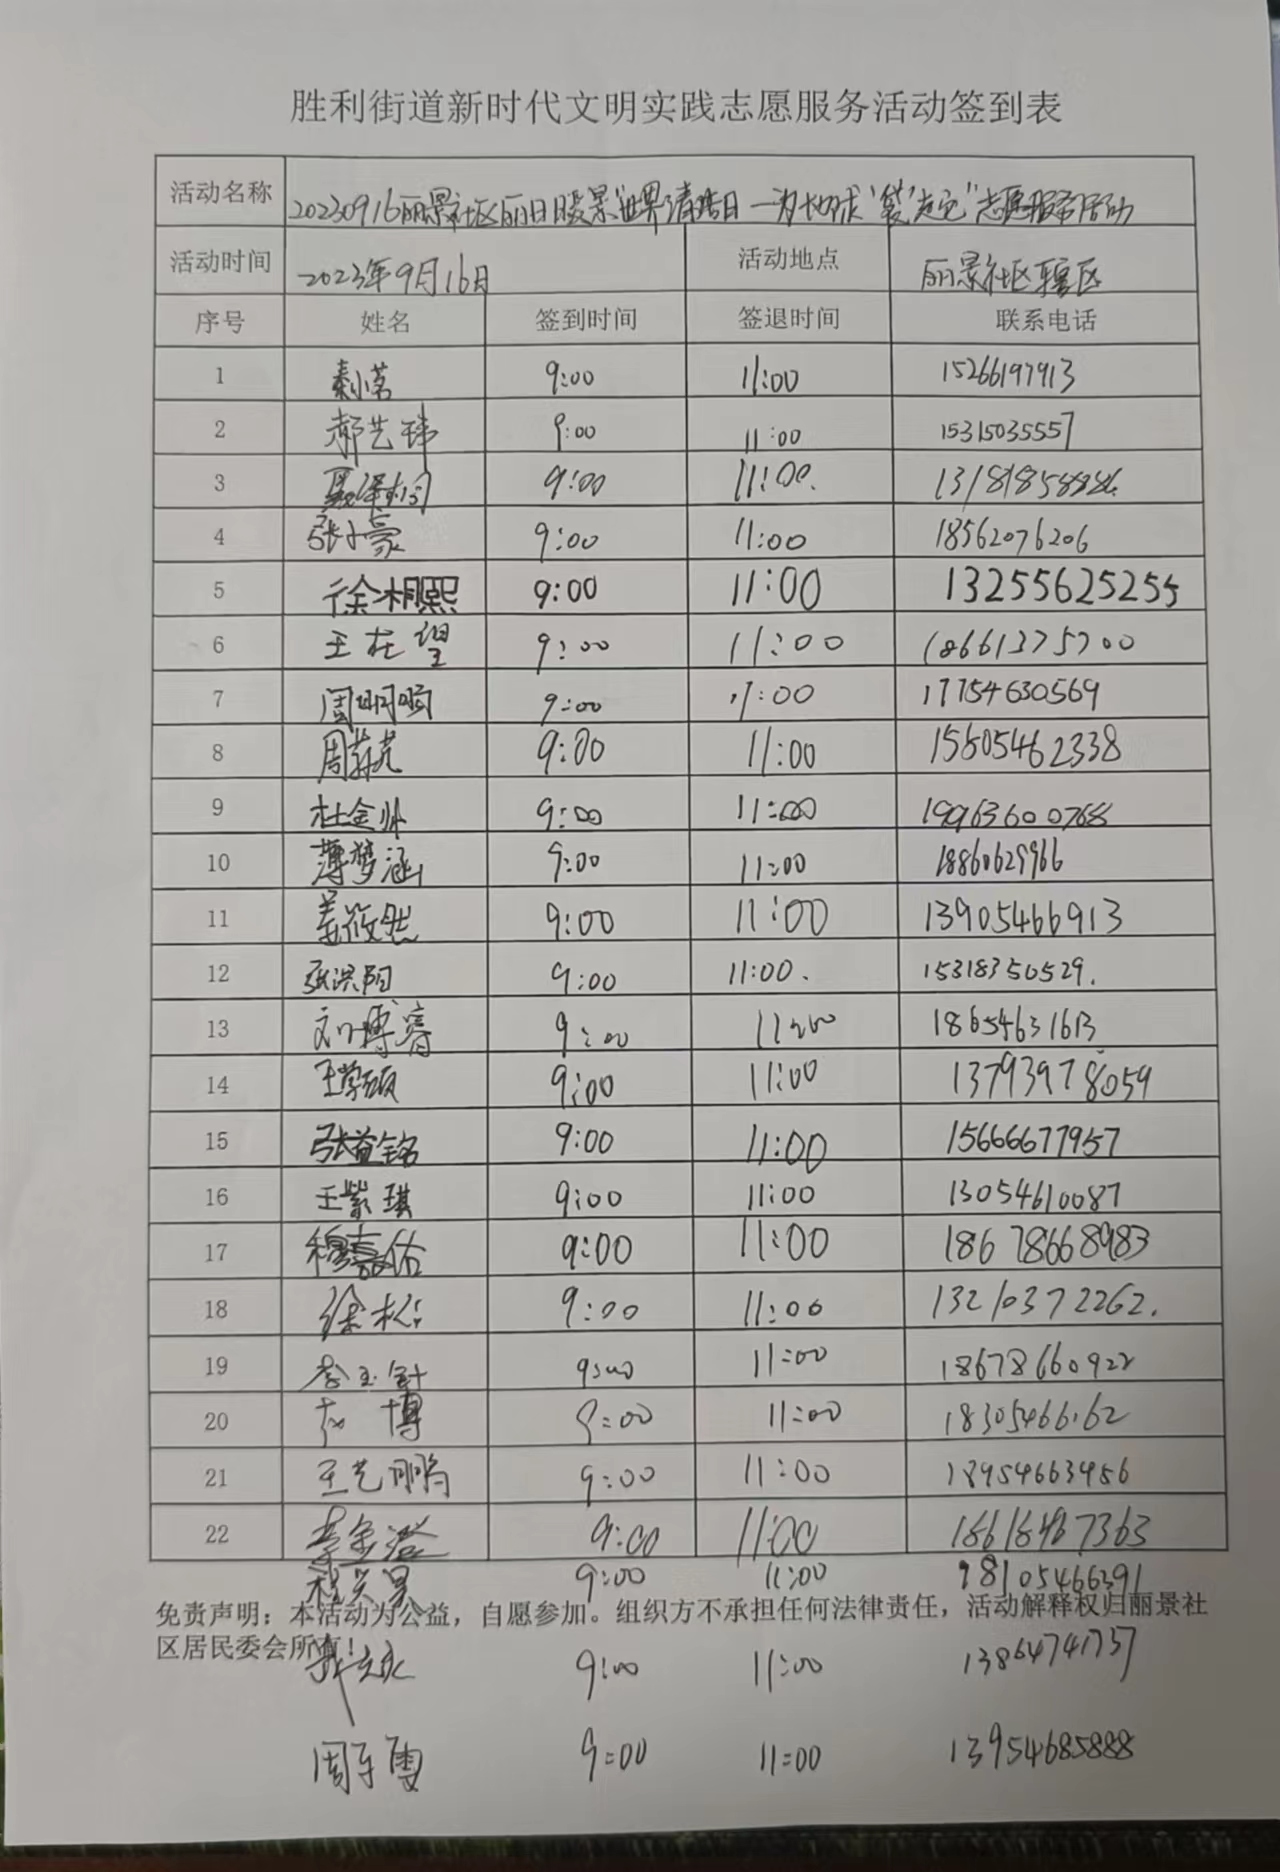 胜利街道新时代文明实践志愿服务活动签到表
活动名称 20230916丽景社区丽日暖景"世界清洁日—为地球'袋'走它"志愿服务活动
活动时间 2023年9月16日 活动地点 丽景社区辖区
序号 姓名 签到时间 签退时间 联系电话
1 秦小茗 9:00 11:00 15266197913
2 郝艺玮 9:00 11:00 15315035557
3 9:00 11:00. 13181858886.
4 张小豪 9:00 11:00 18562076206
5 徐相熙 9:00 11:00 13255625255
6 王在望 9:00 11:00 18661375700
7 周明鸣 9:00 11:00 17754630569
8 周 9:00 11:00 15505462338
9 杜金帅 9:00 11:00 19963600768
10 薄梦涵 9:00 11:00 18860629966
11 姜筱然 9:00 11:00 13905466913
12 张洪阳 9:00 11:00. 15318350529.
13 刘博睿 9:00 11:00 18654631613
14 王学硕 9:00 11:00 13793978059
15 张益铭 9:00 11:00 15666677957
16 王紫琪 9:00 11:00 13054610087
17 穆嘉佑 9:00 11:00 18678668983
18 徐松 9:00 11:00 13210372262.
19 9:00 11:00 18678660922
20 博 9:00 11:00 18305466162
21 王艺鹏 9:00 11:00 18954663456
22 李金 9:00 11:00 18618487363
程 昊 9:00 11:00 18105466391
免责声明：本活动为公益，自愿参加。组织方不承担任何法律责任，活动解释权归丽景社
区居民委会所有！
9:00 11:00 13864741757
周子雯 9:00 11:00 13954685888